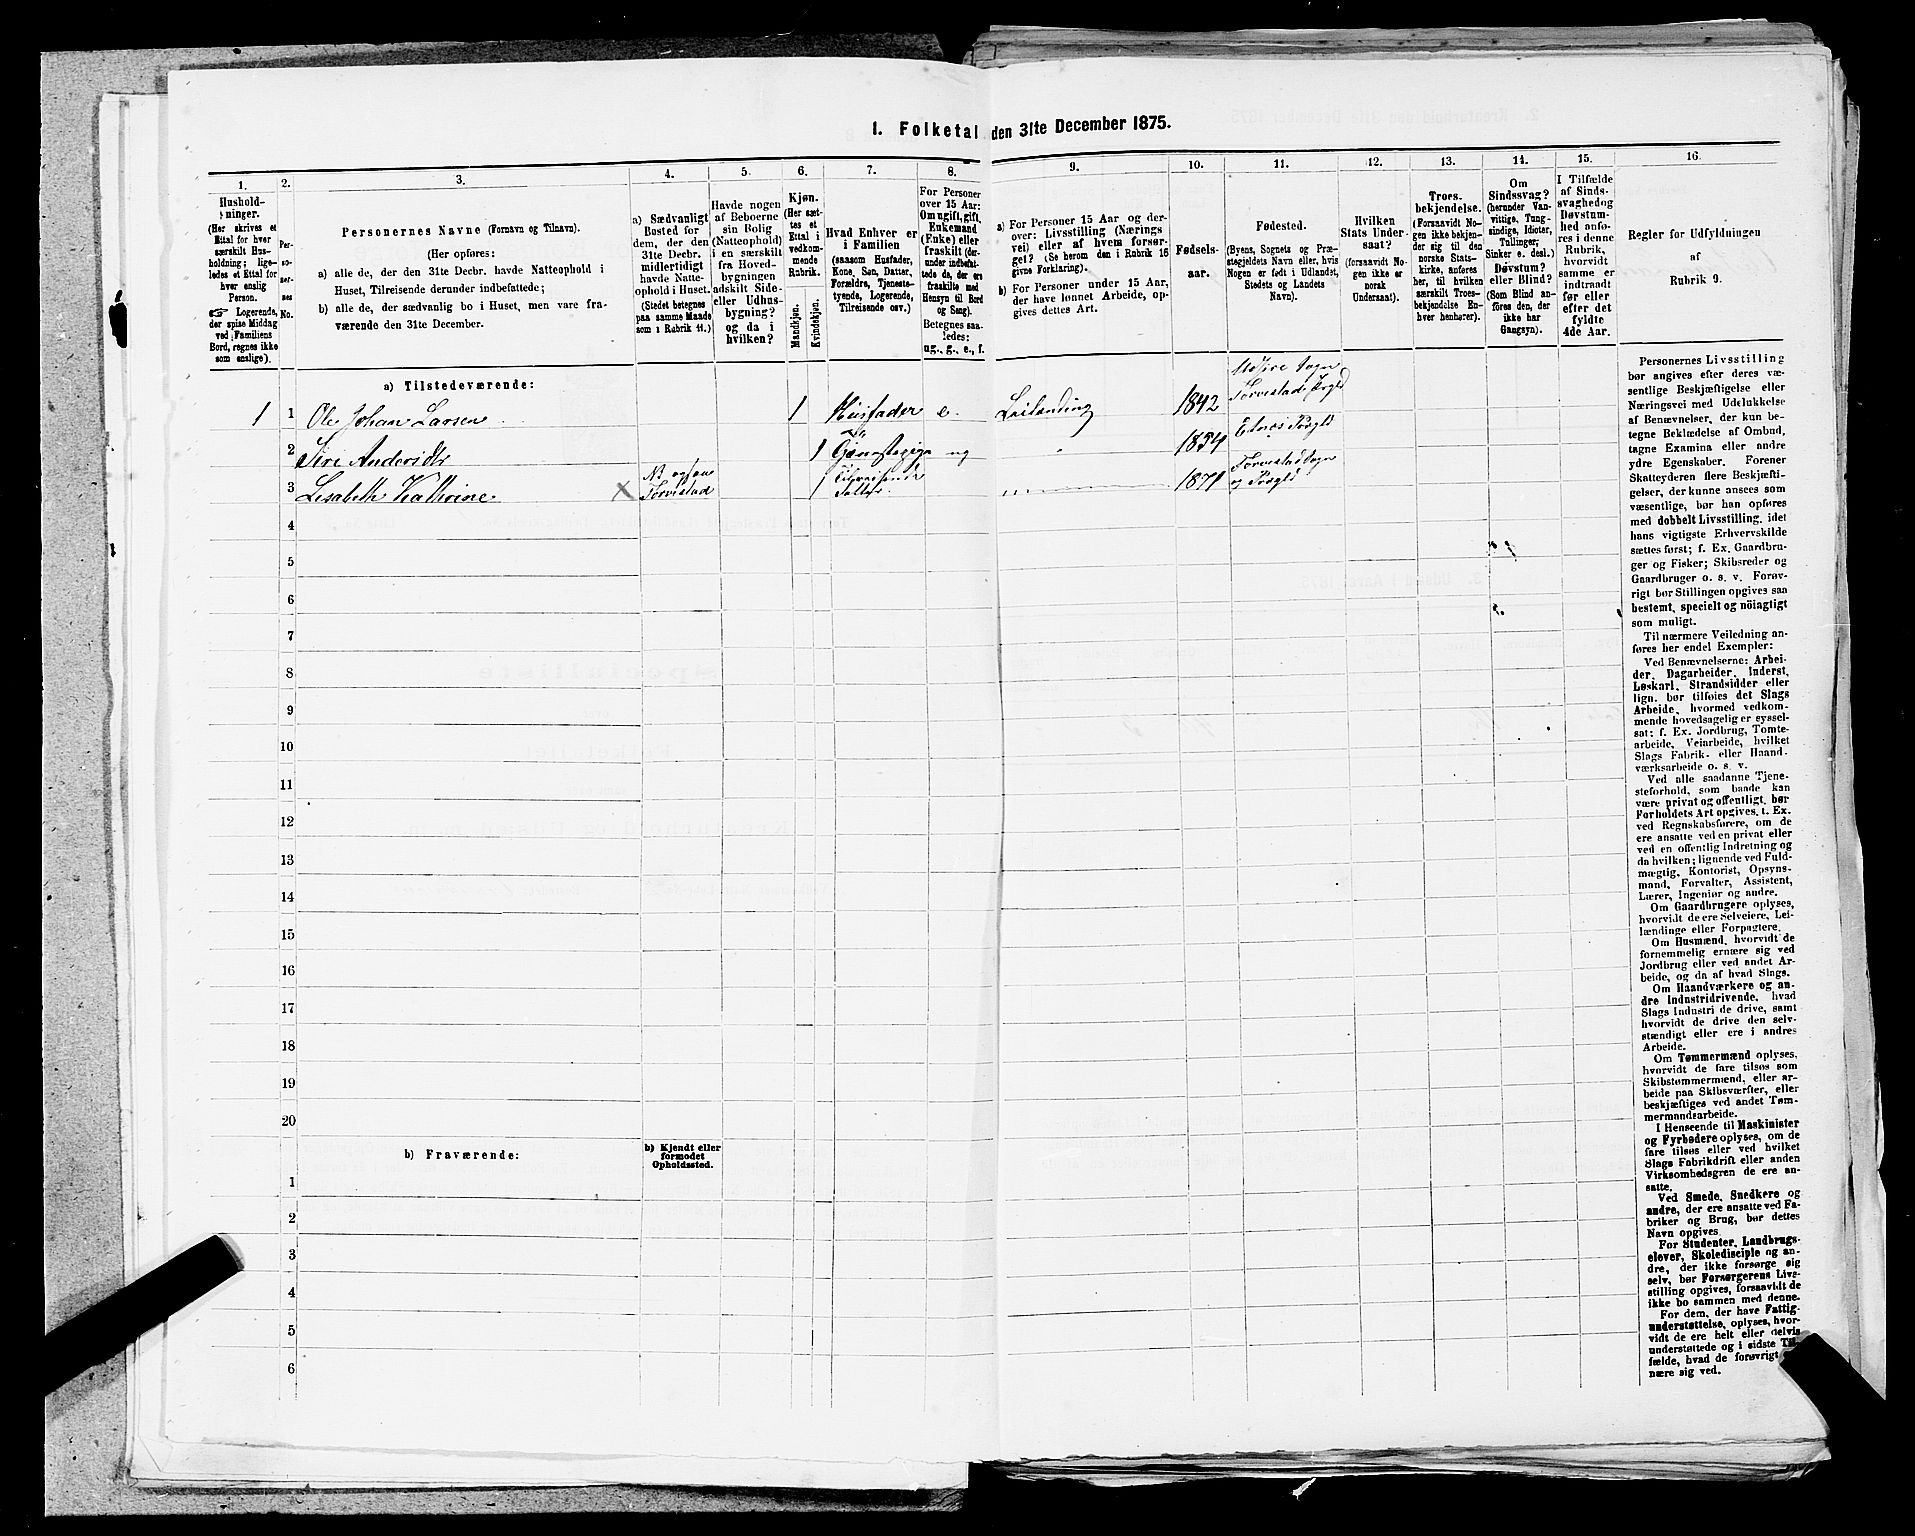 1. Folketal den 31te December 1875.
1.
Hushold-
ninger.
(Her skrives et
Ettal for hver
særskilt Hus-
holdning; lige-
ledes et Ettal for
hver enslig
Person.
☞ Logerende,
der spise Middag
ved Familiens
Bord, regnes ikke
som enslige).
2.
Per-
so-
ner-
nes
No.
3.
Personernes Navne (Fornavn og Tilnavn).
(Her opføres:
a) alle de, der den 31te Decbr. havde Natteophold i
Huset, Tilreisende derunder indbefattede;
b) alle de, der sædvanlig bo i Huset, men vare fra-
værende den 31te December.
4.
a) Sædvanligt
Bosted for
dem, der den
31te Decbr.
midlertidigt
havde Natte-
ophold i Huset.
(Stedet betegnes
paa samme Maade
som i Rubrik 11.)
5.
Havde nogen
af Beboerne
sin Bolig
(Natteophold)
i en særskilt
fra Hoved-
bygningen
adskilt Side-
eller Udhus-
bygning?
og da i
hvilken?
6.
Kjøn.
(Her sæt-
tes et
Ettal i
vedkom-
mende
Rubrik.
Mandkjøn.
Kvindekjøn.
7.
Hvad Enhver er
i Familien
(saasom Husfader,
Kone, Søn, Datter,
Forældre, Tjeneste-
tyende, Logerende,
Tilreisende osv.)
8.
For Personer
over 15 Aar:
Om ugift, gift,
Enkemand
(Enke) eller
fraskilt (der-
under indbefat-
tede de, der ere
fraskilte med
Hensyn til Bord
og Seng).
Betegnes saa-
ledes:
ug., g., e., f.
9.
a) For Personer 15 Aar og der-
over: Livsstilling (Nærings
vei) eller af hvem forsør-
get? (Se herom den i Rubrik 16
givne Forklaring).
b) For Personer under 15 Aar,
der have lønnet Arbeide, op-
gives dettes Art.
10.
Fødsels-
aar.
11.
Fødested.
(Byens, Sognets og Præ-
stegjeldets Navn eller, hvis
Nogen er født i Udlandet,
Stedets og Landets
Navn).
12.
Hvilken
Stats Under-
saat?
(forsaavidt No-
gen ikke er
norsk
Undersaat).
13.
Troes-
bekjendelse.
(Forsaavidt No-
gen ikke bekjen-
der sig til den
norske Stats-
kirke, anføres
her, til hvilken
særskilt Troes-
bekjendelse En-
hver henhører).
14.
Om
Sindssvag?
(herunder Van-
vittige, Tung-
sindige, Idioter,
Tullinger,
Sinker e. desl.)
Døvstum?
eller Blind?
(Som Blind an-
føres den, der
ikke har
Gangsyn).
15.
I Tilfælde
af Sinds-
svaghed og
Døvstum-
hed anfø-
res i denne
Rubrik,
hvorvidt
samme er
indtraadt
før eller
efter det
fyldte
4de Aar.
16.
Regler for Udfyldningen
af
Rubrik 9.
a) Tilstedeværende:
1 1 Ole Johan Larsen 1 Husfader e. Leilending 1842 Sogn Torvestad Prgld
2 Siri Andersdtr 1 Tjenestepige ug 1854 Etnes Prsgld
3 Lisabeth Kathrine Torvestad 1 Tilreisende Datter 1871 Torvestad Sogn og Prsgld
4
5
6
7
8
9
10
11
12
13
14
15
16
17
18
19
20
b) Fraværende:
b) Kjendt eller
formodet
Opholdssted.
1
2
3
4
5
6
Personernes Livsstilling
bør angives efter deres væ-
sentlige Beskjæftigelse eller
Næringsvei med Udelukkelse
af Benævnelser, der kun be-
tegne Beklædelse af Ombud,
tagne Examina eller andre
ydre Egenskaber. Forener
Skatteyderen flere Beskjæfti-
gelser, der kunne ansees som
væsentlige, bør han opføres
med dobbelt Livsstilling, idet
hans vigtigste Erhvervskilde
sættes først; f. Ex. Gaardbru-
ger og Fisker; Skibsreder og
Gaardbruger o. s. v. Forøv-
rigt bør Stillingen opgives saa
bestemt, specielt og nöiagtigt
som muligt.
Til nærmere Veiledning an-
føres her endel Exempler:
Ved Benævnelserne: Arbei-
der, Dagarbeider, Inderst,
Løskarl, Strandsidder eller
lign. bør tilføies det Slags
Arbeide, hvormed vedkom-
mende hovedsagelig er syssel-
sat; f. Ex. Jordbrug, Tomte-
arbeide, Veiarbeide, hvilket
Slags Fabrik- eller Haand-
værksarbeide o. s. v.
Ved alle saadanne Tjene-
steforhold, som baade kan
være privat og offentligt, bør
Forholdets Art opgives, t. Ex.
ved Regnskabsførere, om de
ere ansatte ved en privat eller
ved en offentlig Indretning og
da hvilken; lignende ved Fuld-
mægtig, Kontorist, Opsyns-
mand, Forvalter, Assistent,
Lærer, Ingeniør og andre.
Om Gaardbrugere oplyses,
hvorvidt de ere Selveiere, Lei-
lændinge eller Forpagtere.
Om Husmænd, hvorvidt de
fornemmelig ernære sig ved
Jordbrug eller ved andet Ar-
beide, og da af hvad Slags.
Om Haandværkere og an-
dre Industridrivende, hvad
Slags Industri de drive, samt
hvorvidt de drive den selv-
stændigt eller ere i andres
Arbeide.
Om Tømmermænd oplyses,
hvorvidt de fare tilsøs som
Skibstømmermænd, eller ar-
beide paa Skibsværfter, eller
beskjæftiges ved andet Tøm-
mermandsarbeide.
I Henseende til Maskinister
og Fyrbødere oplyses, om de
fare tilsøs eller ved hvilket
Slags Fabrikdrift eller anden
Virksomhedsgren de ere an-
satte.
Ved Smede, Snedkere og
andre, der ere ansatte ved Fa-
briker og Brug, bør dettes
Navn opgives.
For Studenter, Landbrugs-
elever, Skoledisciple og an-
dre, der ikke forsørge sig
selv, bør Forsørgerens Livs-
stilling opgives, forsaavidt de
ikke bo sammen med denne.
For dem, der have Fattig-
understøttelse, oplyses, hvor-
vidt de ere helt eller delvis
understøttede og i sidste Til-
fælde, hvad de forøvrigt
nære sig ved.